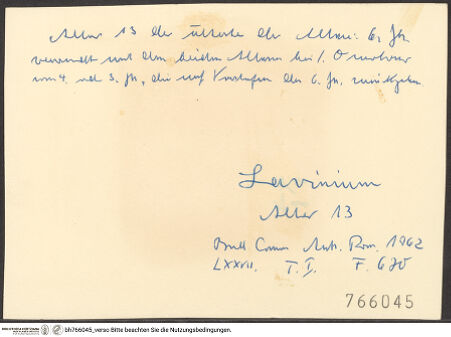 Altar 13 der älteste der Altäre: 6. Jh.
verwandt mit den beiden Altären bei S. Omobono
vom 4. und 3. Jh., die auf Vorstufen des 6. Jh. zurückgehen.
Lavinium
Altar 13
Bull Comm Arch. Rom. 1962
LXXVII. T. I. F. 6
766045
bh766045_verso Bitte beachten Sie die Nutzungsbedingungen.